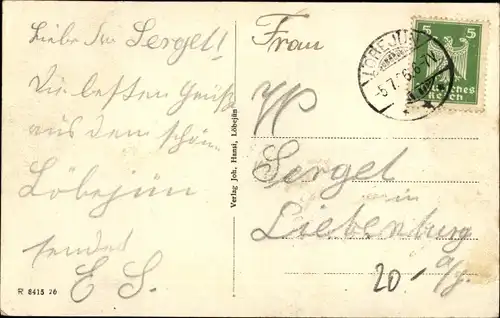 Liebe Frau Sergel!
Die besten Grüße
aus dem schön.
Löbejün
sendet
E. S.
R 8415 26
Verlag Joh. Hansl, Löbejün
Frau
W. Sergel
in
Liebenburg
a/H.
20.-
LÖBEJÜN
5
5
Deutsches
Reich